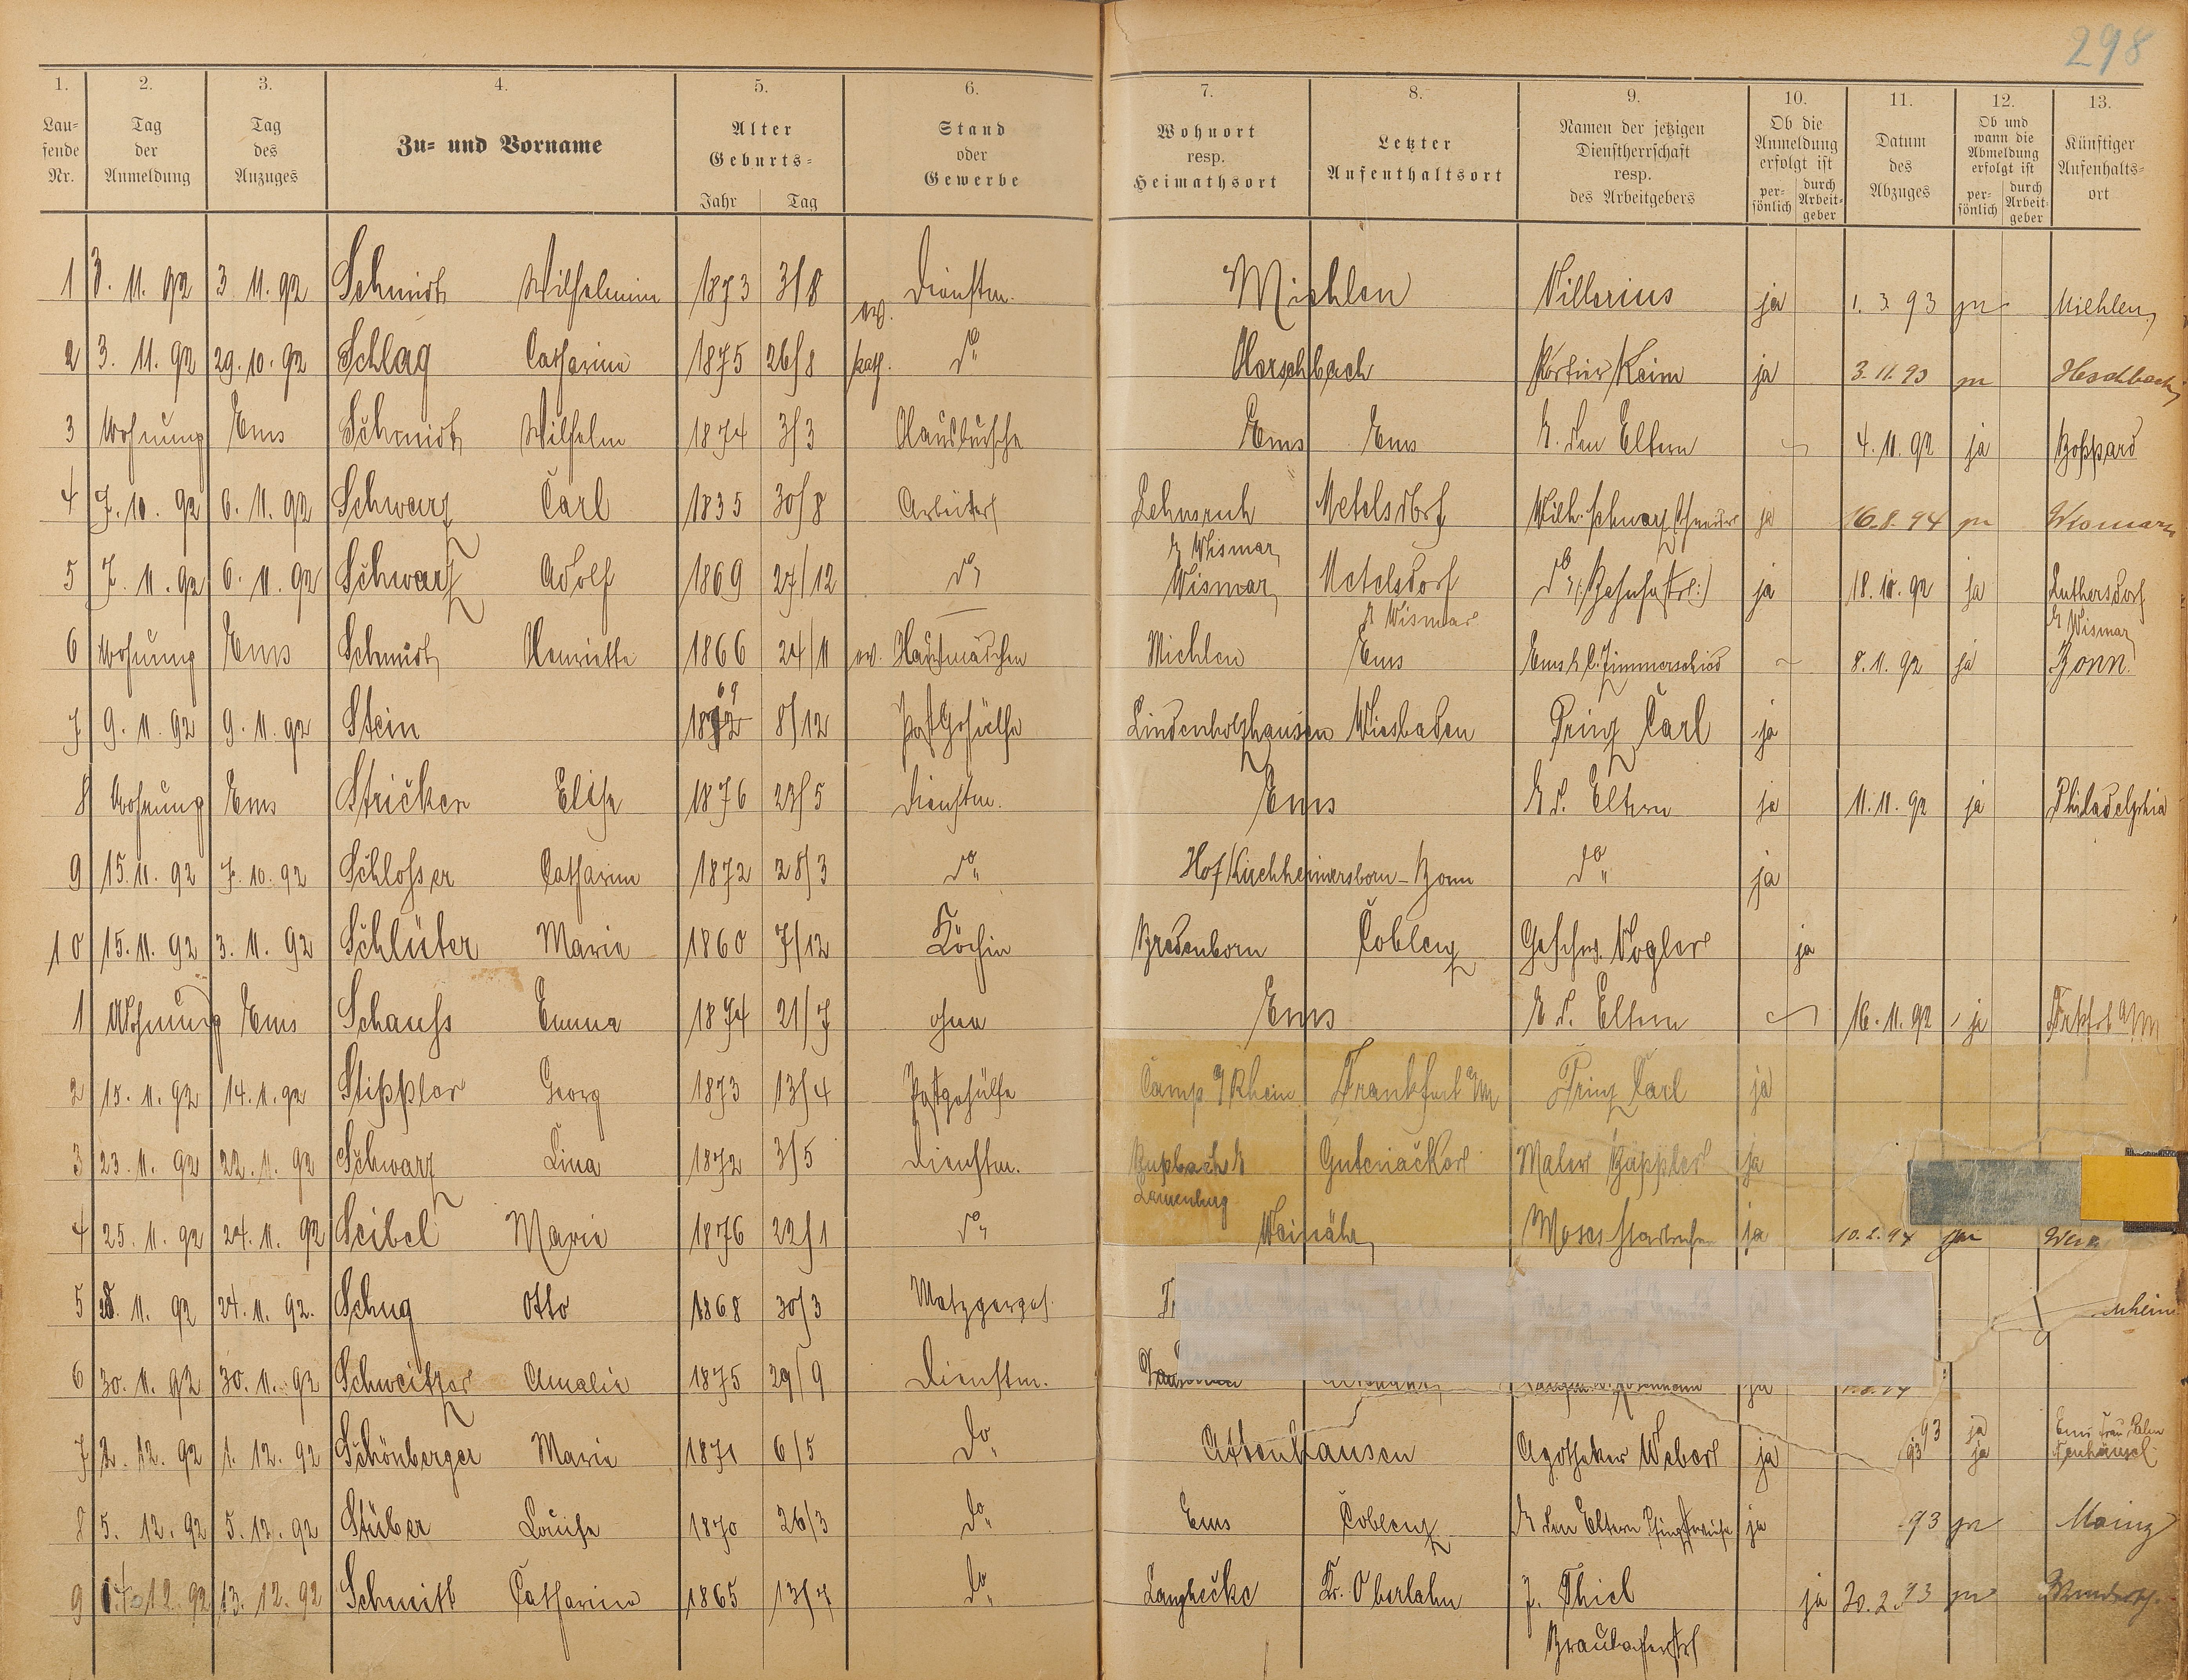 298
1. 2. 3. 4. 5. 6. 7. 8. 9. 10. 11. 12. 13.
Lau-
fende
Nr.
Tag
der
Anmeldung
Tag
des
Anzuges
Zu- und Vorname
Alter
Geburts-
Jahr Tag
Stand
oder
Gewerbe
Wohnort
resp.
Heimathsort
Letzter
Aufenthaltsort
Namen der jetzigen
Dienstherrschaft
resp.
des Arbeitgebers
Ob die
Anmeldung
erfolgt ist
per-
sönlich
durch
Arbeit-
geber
Datum
des
Abzuges
Ob und
wann die
Abmeldung
erfolgt ist
per-
sönlich
durch
Arbeit-
geber
Künftiger
Aufenthalts-
ort
1 3. 11. 92 3 11. 92 Schmidt Wilhelmine 1873 3/8 ev. Dienstm. Miehlen Villerius ja 1. 3. 93 Miehlen
2 3. 11. 92 29. 10. 92 Schlag Catharine 1875 26/8 kath. do Keim ja 3. 11. 93
3 Wohnung Ems Schmidt Wilhelm 1874 3/3 Hausbursche Ems Ems b. den Eltern 4. 11. 92 ja Boppard
4 7. 10. 92 6. 11. 92 Schwarz Carl 1835 30/8 Arbeiter Lehnsruh Metelsdorf Wilh. Schwarz ja 16. 8. 94 Wismar
b Wismar
5 7. 11. 92 6. 11. 92 Schwarz Adolf 1869 27/12 do Wismar Metelsdorf do ja 18. 11. 92 ja Luthersdorf
b Wismar b Wismar
6 Wohnung Ems Schmidt Henriette 1866 24/11 ev. Hausmädchen Miehlen Ems Ems b. Zimmerschied 8. 11. 92 ja Bonn
69
7 9. 11. 92 9. 11. 92 Stein 1872 8/12 Postgehülfe Lindenholzhausen Wiesbaden Prinz Carl ja
8 Wohnung Ems Stricker Elise 1876 23/5 Dienstm. Ems b d. Eltern ja 11. 11. 92 ja Philadelphia
9 15. 11. 92 7. 10. 92 Schlosser Catharine 1872 28/3 do Hof Kirchheimersborn - Bonn do ja
10 15. 11. 92 3. 11. 92 Schlüter Marie 1860 7/12 Köchin Bredenborn Coblenz Geschw. Vogler ja
1 Wohnung Ems Schauss Emma 1874 21/7 ohne Ems b d. Eltern 16. 11. 92 ja Frkfrt a/M
2 15. 11. 92 14. 11. 92 Stippler Georg 1873 13/4 Postgehülfe Camp a/Rhein Frankfurt a/M Prinz Carl ja
3 23. 11. 92 22. 11. 92 Schwarz Lina 1872 3/5 Dienstm. Rupbach b Gutenacker Maler Küppler ja
Laurenburg
4 25. 11. 92 24. 11. 92 Seibel Marie 1876 22/1 do Weinähr Moses ja 10. 2. 94
5 28. 11. 92 24. 11. 92. Schug Otto 1868 30/3 Metzgerges.
6 30. 11. 92 30. 11. 92 Schweitzer Amalie 1875 29/9 Dienstm. ja
7 2. 12. 92 1. 12. 92 Schönberger Marie 1871 6/5 do Attenhausen Apotheker Weber ja 93 ja Ems
93 ja Neuhäusel
8 5. 12. 92 5. 12. 92 Stüber Louise 1870 26/3 do Ems Coblenz b den Eltern ja 93 Mainz
9 14. 12. 92 13. 12. 92 Schmitt Catharina 1865 13/7 do Langhecke Kr. Oberlahn J. Thiel ja 20. 2. 93
Braubacherstr